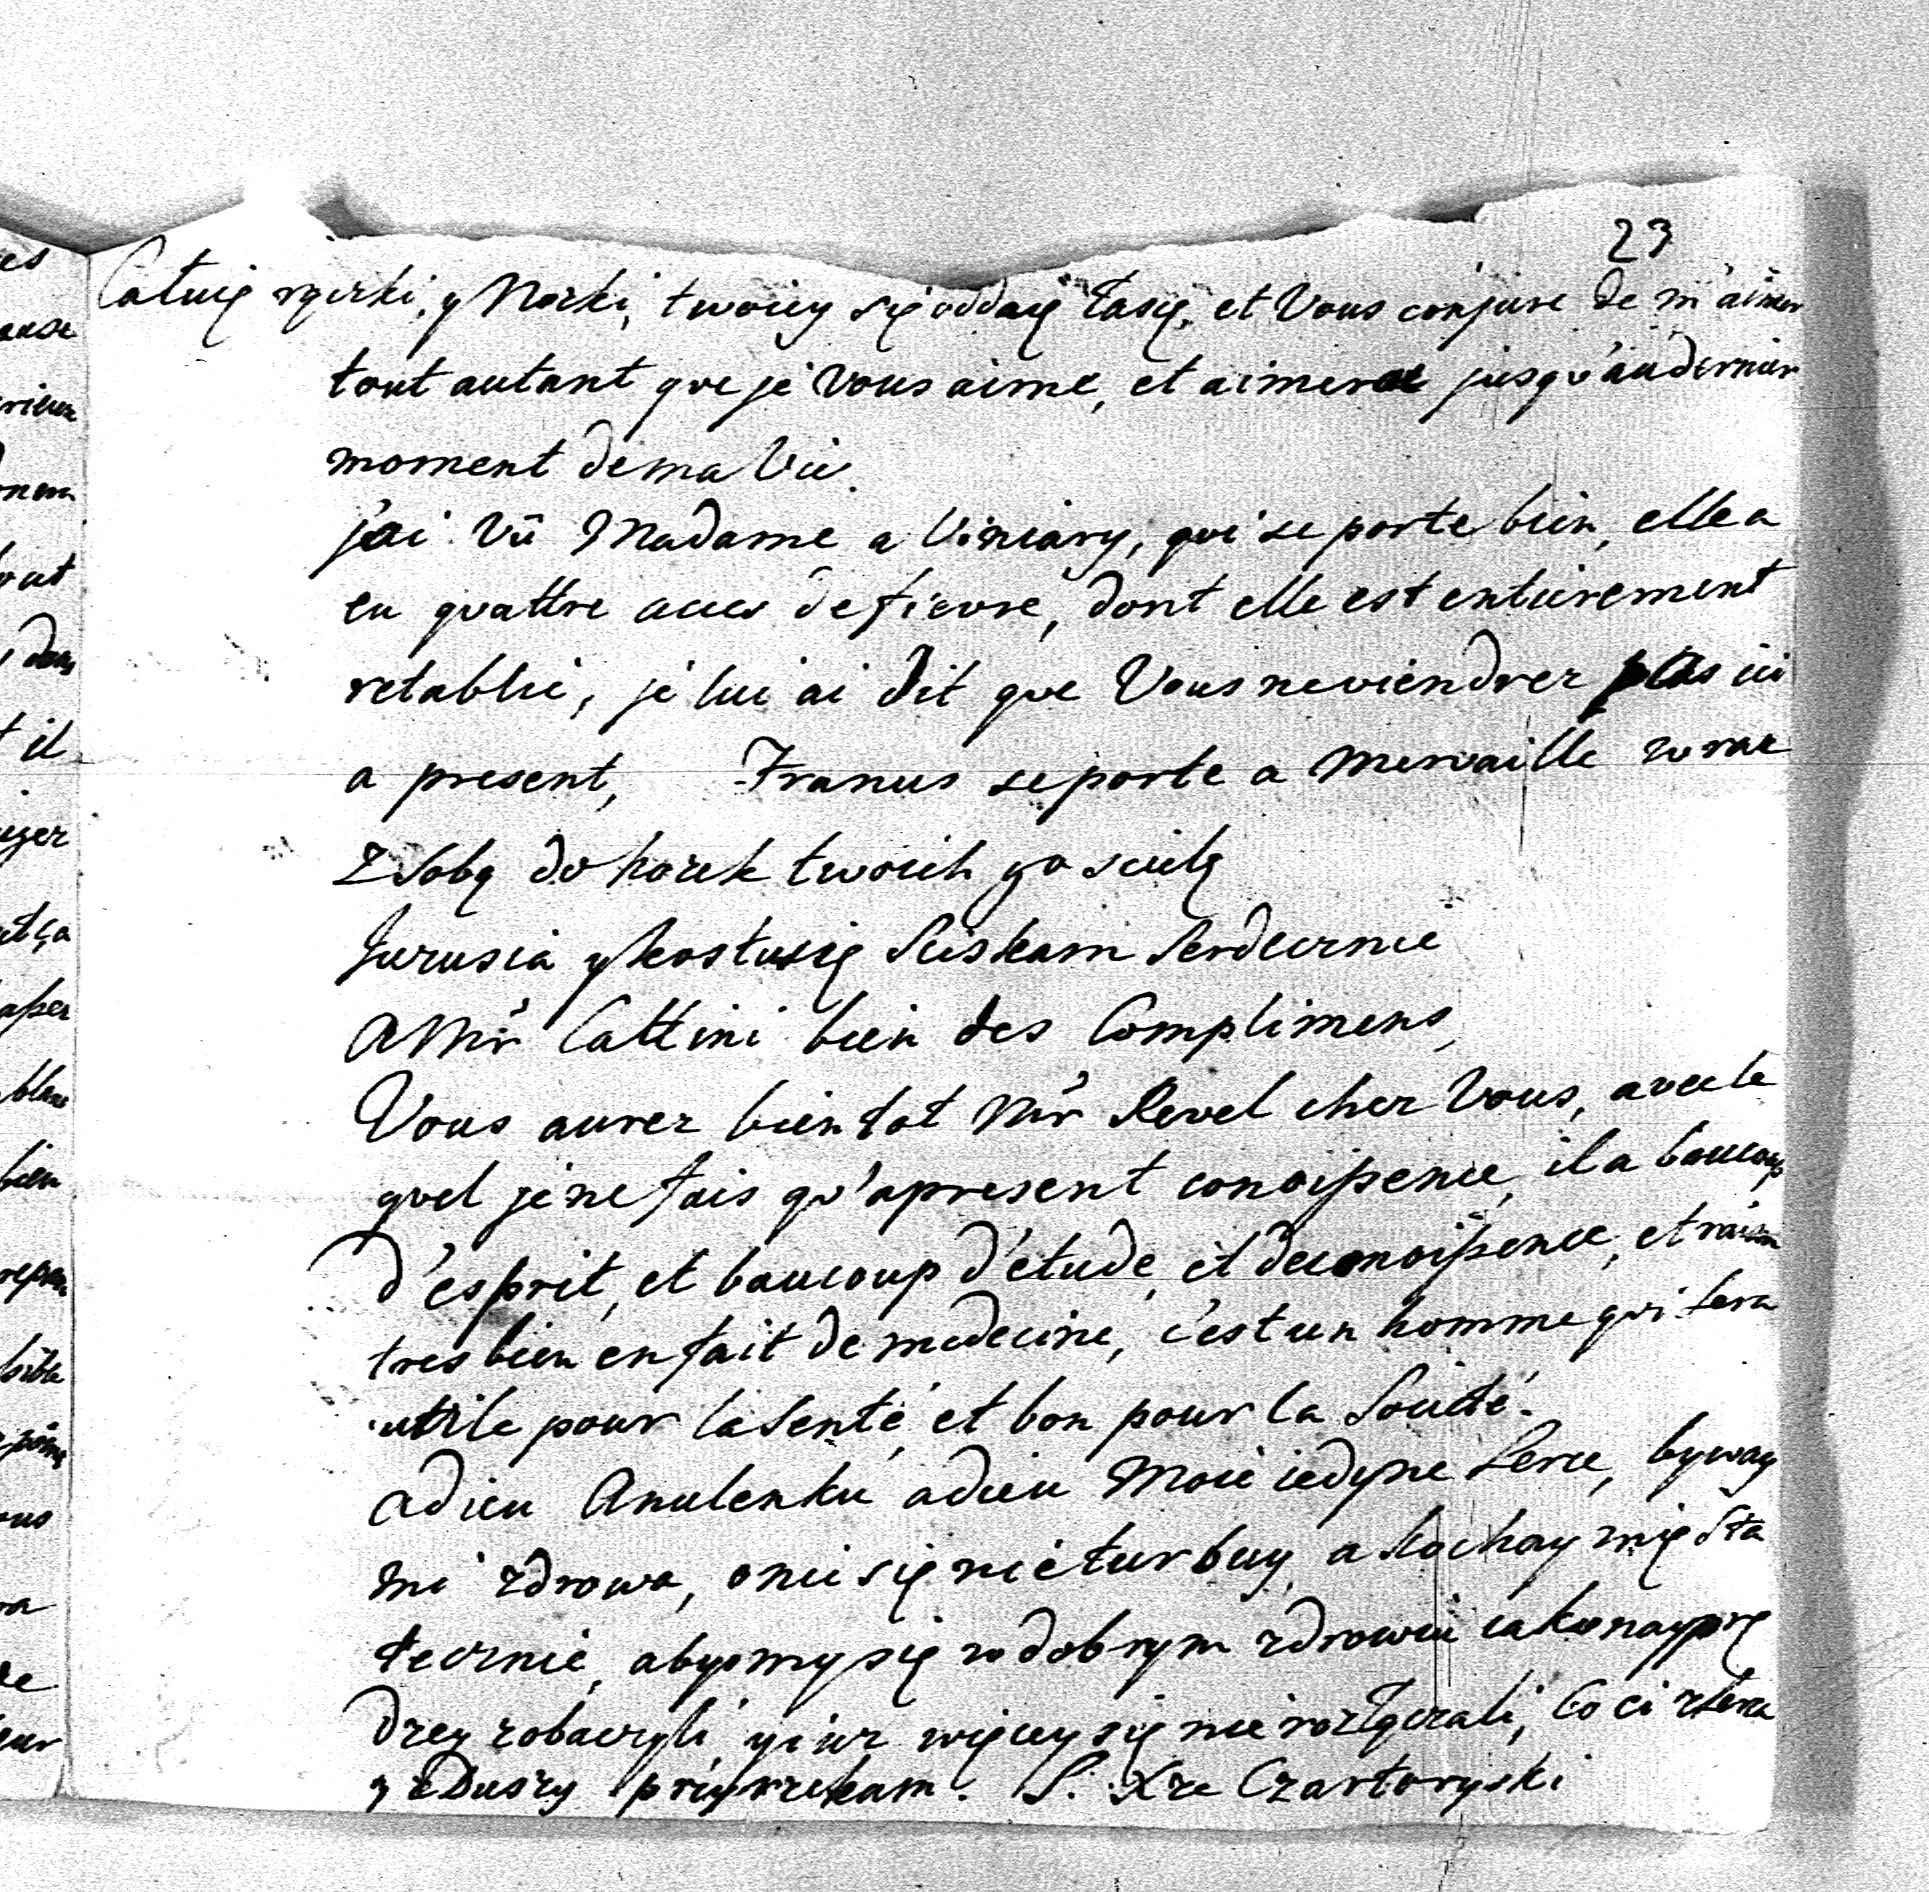 23
Całuię rączki, y Nożki, twoiey się oddaię łasce, et Vous conjure de m'aimer
tout autant que je vous aime, et aimerai jusqu'au dernier
moment de ma Vie.
j'ai vû Madame a Viniary, qui se porte bien, elle a
eu quattre acces de fievre, dont elle est entierement
retablie, je lui ai dit que Vous ne viendrez pas ici
a present, Franus se porte a mervaille wraz
z sobą do nożek twoich go scielę
Jurusia y Kostusię sciskam serdecznie
a Mr Cattini bien des Complimens,
Vous aurez bientot Mr Revel chez Vous, avec le
quel je ne fais qu'apresent conoissence, il a baucoup
d'esprit, et baucoup d'étude, et de conoissence, et raison
tres bien en fait de medecine, c'est un homme qui sera
utile pour la senté, et bon pour la Societé.
adieu Anulenku adieu Moie iedyne serce, byway
mi zdrowa, o nic się nie turbuy, a kochay mię sta
tecznie, abysmy się w dobrym zdrowiu iako nayprę
dzey zobaczyli, y iuz więcey się nie rozłączali, co ci z serca
y z Duszy przyrzekam. S. Xze Czartoryski